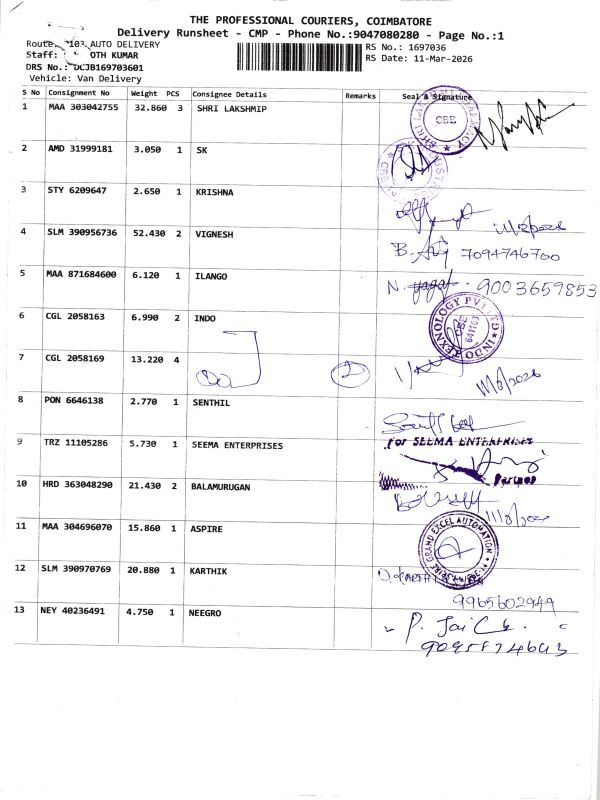 THE PROFESSIONAL COURIERS, COIMBATORE
Delivery Runsheet - CMP - Phone No.:9047080280 - Page No.:1
Route: 103 AUTO DELIVERY
RS No.: 1697036
Staff: OTH KUMAR
RS Date: 11-Mar-2026
DRS No.: DCJB169703601
Vehicle: Van Delivery
S No Consignment No Weight PCS Consignee Details Remarks Seal & Signature
1 MAA 303042755 32.860 3 SHRI LAKSHMIP
CBE
2 AMD 31999181 3.050 1 SK
3 STY 6209647 2.650 1 KRISHNA
4 SLM 390956736 52.430 2 VIGNESH
7094746700
5 MAA 871684600 6.120 1 ILANGO
N. 9003659853
6 CGL 2058163 6.990 2 INDO
INDO TEXNOLOGY PVT LTD
CBE
641103
7 CGL 2058169 13.220 4
2
11/3/2026
8 PON 6646138 2.770 1 SENTHIL
9 TRZ 11105286 5.730 1 SEEMA ENTERPRISES
For SEEMA ENTERPRISES
Partner
10 HRD 363048290 21.430 2 BALAMURUGAN
11 MAA 304696070 15.860 1 ASPIRE
ASPIRE GRAND EXCEL AUTOMATION
12 SLM 390970769 20.880 1 KARTHIK
9965602949
13 NEY 40236491 4.750 1 NEEGRO
P.